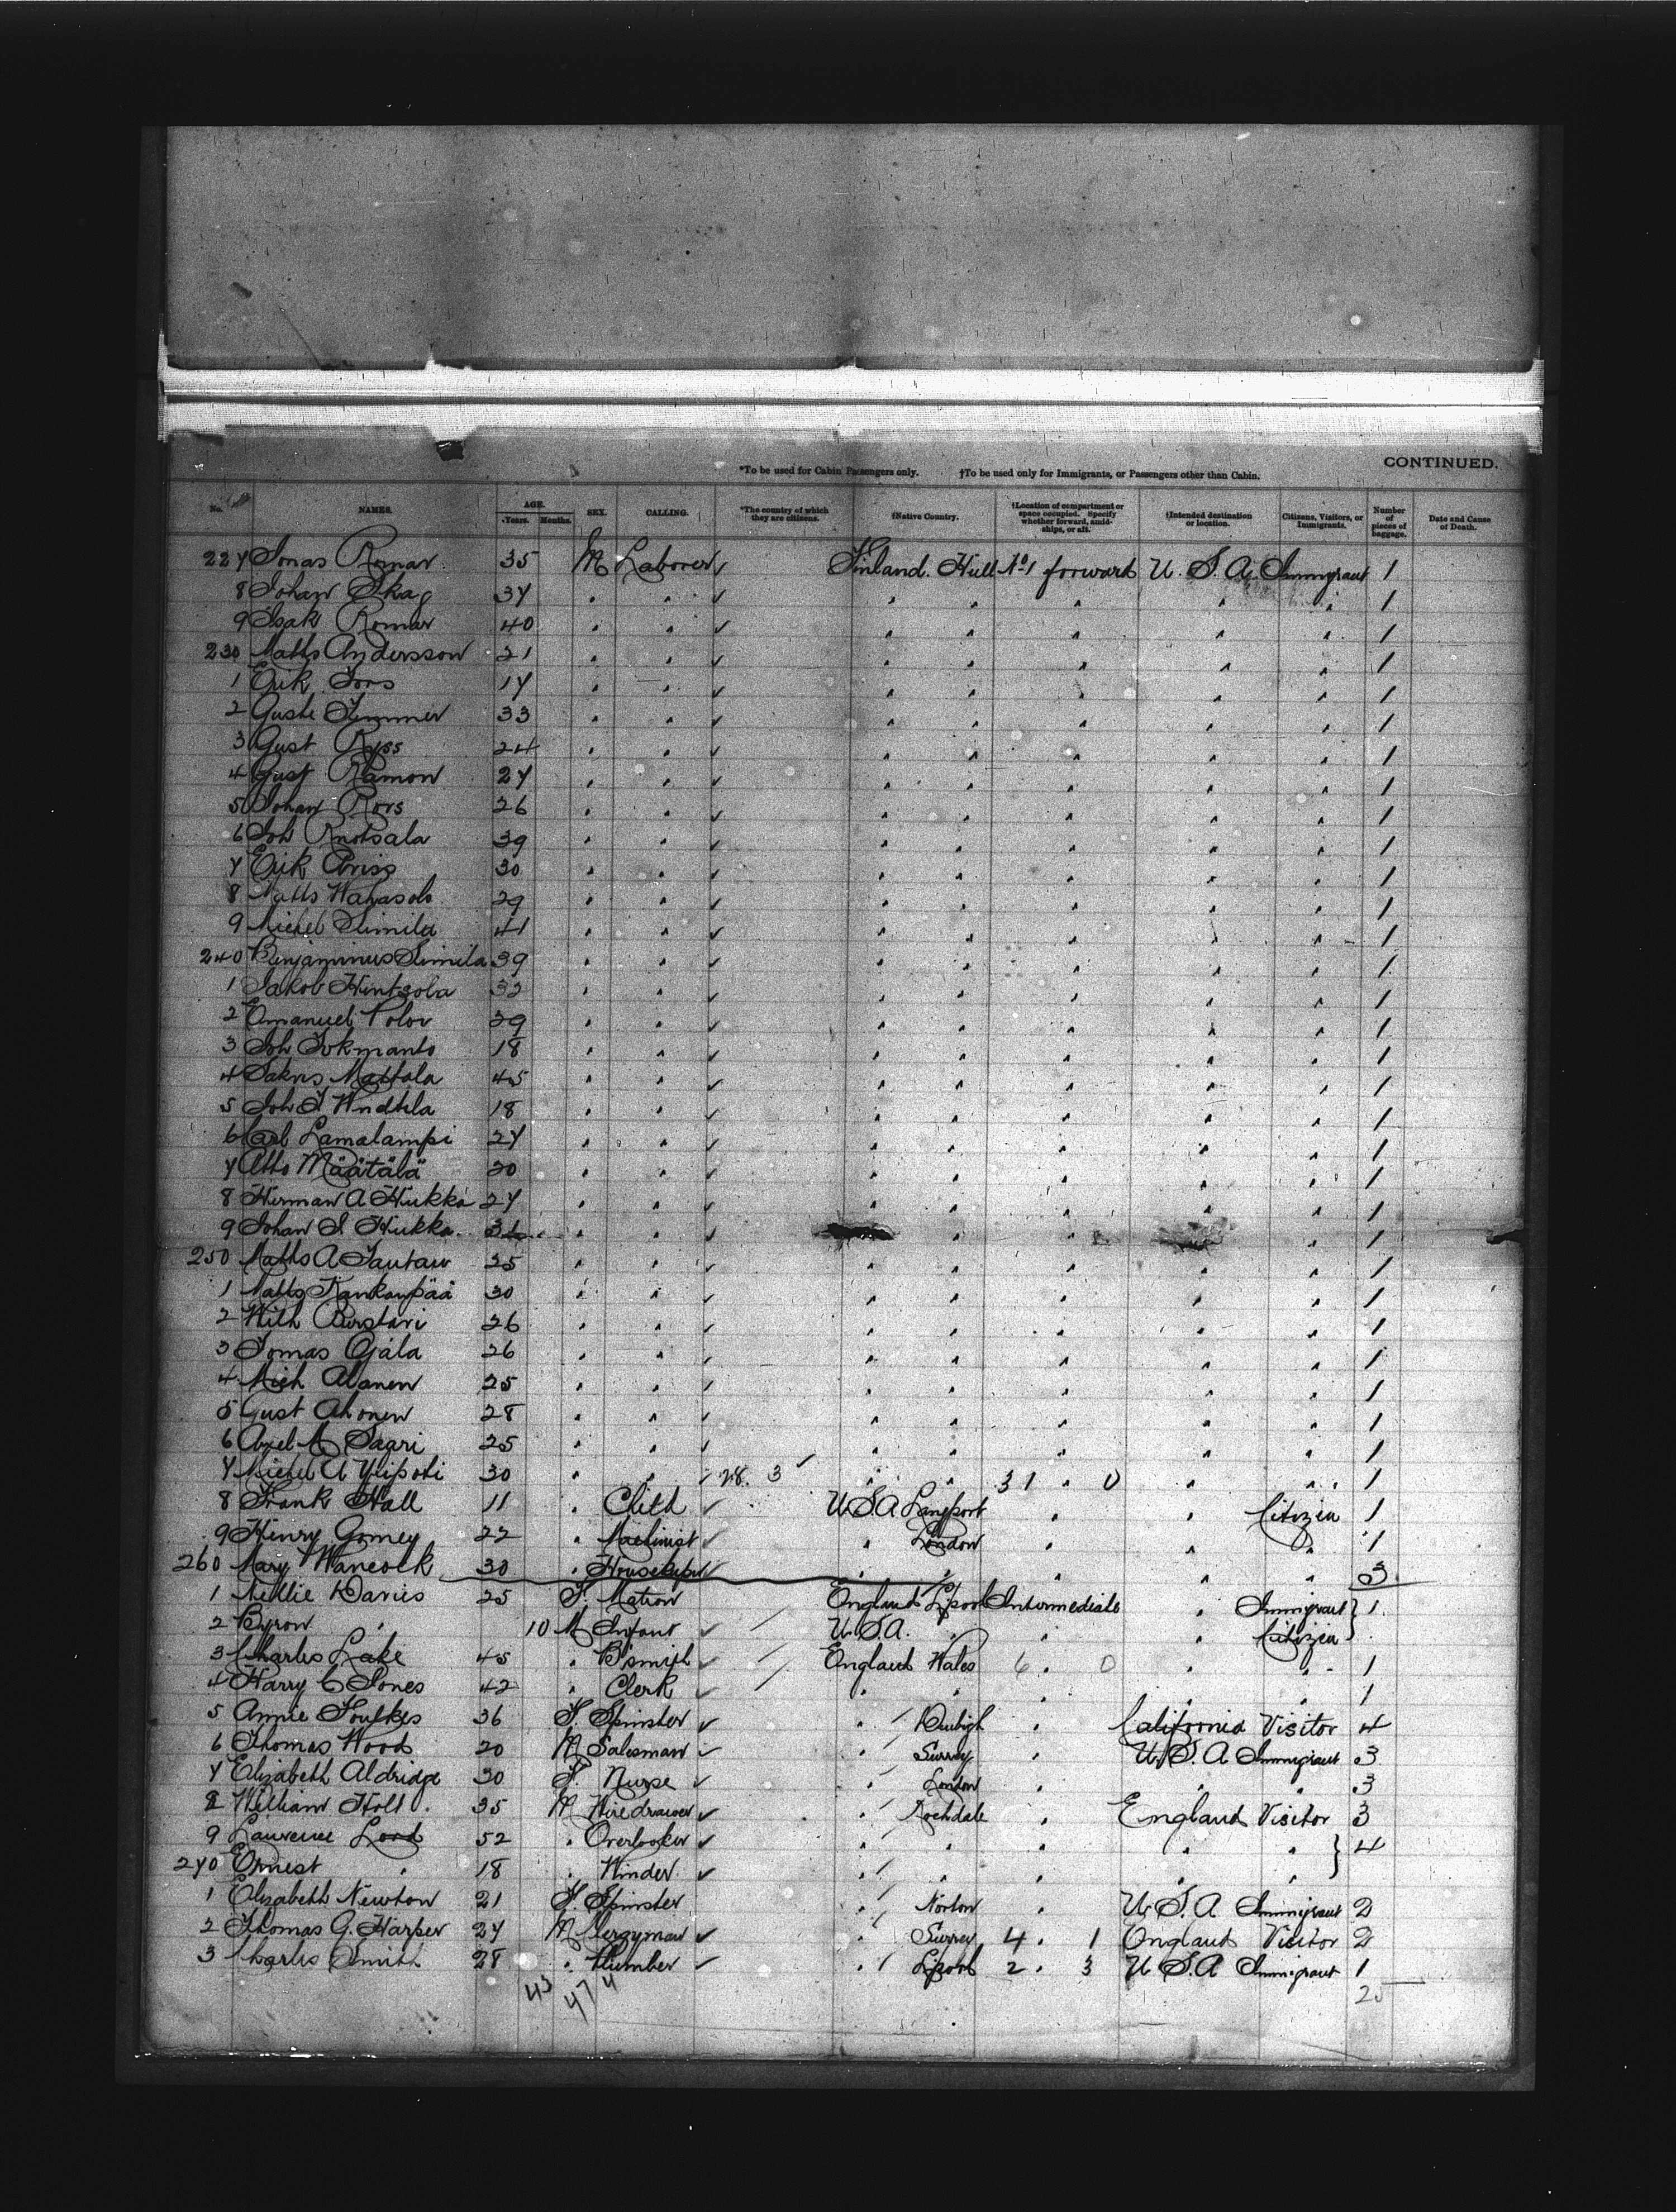 CONTINUED.
*To be used for Cabin Passengers only. †To be used only for Immigrants, or Passengers other than Cabin.
No. NAMES. AGE. Years. Months. SEX. CALLING. *The country of which they are citizens. †Native Country. †Location of compartment or space occupied. Specify whether forward, amidships, or aft. †Intended destination or location. Citizens, Visitors, or Immigrants. Number of pieces of baggage. Date and Cause of Death.
227 Jonas Romar 35 M Laborer Finland. Hull No 1 forward U.S.A. Immigrant 1
8 Johan Skag 37 " " " " " " " 1
9 Isak Romar 40 " " " " " " " 1
230 Matts Andersson 21 " " " " " " " 1
1 Erik 17 " " " " " " " 1
2 Guste 33 " " " " " " " 1
3 Gust 24 " " " " " " " 1
4 Gust Ramon 27 " " " " " " " 1
5 Johan Rors 26 " " " " " " " 1
6 Joh 39 " " " " " " " 1
7 Erik 30 " " " " " " " 1
8 Matts 29 " " " " " " " 1
9 Michel Simila 41 " " " " " " " 1
240 Benjaminus Simila 39 " " " " " " " 1
1 Jakob 32 " " " " " " " 1
2 Emanuel 29 " " " " " " " 1
3 Joh 18 " " " " " " " 1
4 Mattola 45 " " " " " " " 1
5 Joh 18 " " " " " " " 1
6 Carl Lamalampi 27 " " " " " " " 1
7 Määtälä 30 " " " " " " " 1
8 Herman A Hukka 27 " " " " " " " 1
9 Johan Hukka " " " " " 1
250 Matts A 25 " " " " " " " 1
1 Matts Kankaupää 30 " " " " " " " 1
2 26 " " " " " " " 1
3 Tomas Ojala 26 " " " " " " " 1
4 Mich Alanen 25 " " " " " " " 1
5 Gust Ahonen 28 " " " " " " " 1
6 Axel M Saari 25 " " " " " " " 1
7 Michel A 30 " " 28 3 " " 31 " 0 " " 1
8 Frank Hall 11 " U.S.A " " Citizen 1
9 Henry Gomey 22 " Machinist " London " " " 1
260 Mary Wancock 30 " Housekeeper " " " " " 3
1 Nellie Davies 25 F. Matron England L'pool Intermediate " Immigrant 1
2 Byron " 10 M Infant U.S.A. " " " Citizen
3 Charles Lake 45 " B'smith England Wales 6 " 0 " " 1
4 Harry C Jones 42 " Clerk " " " " " 1
5 Annie Foulkes 36 F. Spinster " Denbigh " California Visitor 4
6 Thomas Wood 20 M Salesman " Surrey " U.S.A Immigrant 3
7 Elizabeth Aldridge 30 F. Nurse " London " " " 3
8 William Holt 35 M Wiredrawer " Rochdale " England Visitor 3
9 Laurence Lord 52 " Overlooker " " " " " 4
270 Ernest " 18 " Winder " " " " "
1 Elizabeth Newton 21 F. Spinster " Norton " U.S.A. Immigrant 2
2 Thomas G. Harper 27 M Clergyman " Surrey 4 " 1 England Visitor 2
3 Charles Smith 28 " Plumber " L'pool 2 " 3 U.S.A Immigrant 1
43 47 4